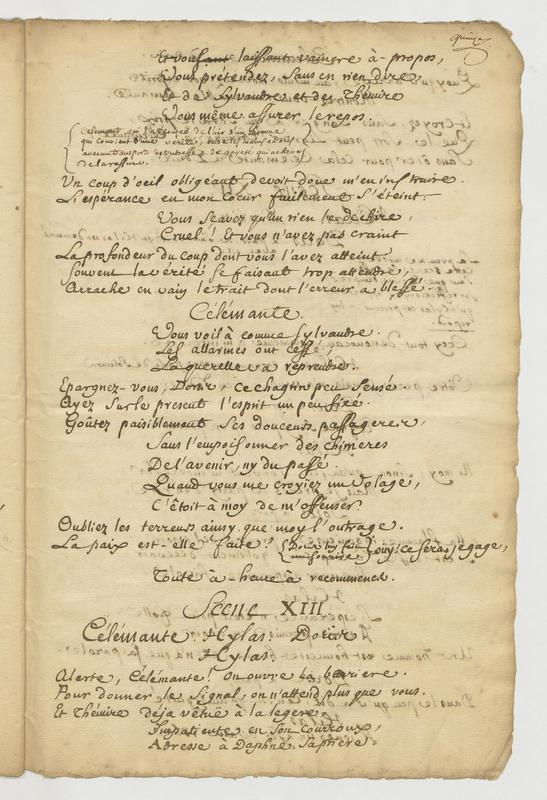 quinze
Et vous laissant vaincre à-propos,
Vous prétendez, sans en rien dire,
Et de Sylvandre et des Thémire
Vous même assurer le repos.
Célémante qui l'a écouté de l'air d'un homme
qui convient d'une vérité,
avec un transport de
de la rassurer.
Un coup d'oeil obligeant devoit donc m'en instruire.
L'espérance en mon coeur facilement s'éteint.
Vous sçavez qu'un rien le déchire,
Cruel! Et vous n'avez pas craint
La profondeur du coup dont vous l'avez atteint.
Souvent la vérité se faisant trop attendre,
Arrache en vain le trait dont l'erreur a blessé.
Célémante.
Vous voilà comme Sylvandre.
Les allarmes ont cessé,
La querelle va reprendre.
Epargnez-vous, Dorise, ce chagrin peu sensé.
Ayez sur le present l'esprit un peu fixé.
Goûtez paisiblement ses douceurs passageres,
Sans l'empoisonner des chimères
De l'avenir, ny du passé.
Quand vous me croyiez un volage,
C'étoit à moy de m'offenser.
Oubliez les terreurs ainsy que moy l'outrage.
La paix est-elle faite? (Doris luy fait un sourire) ouy! ce sera, je gage,
Toute à-heure à recommencer.
Scene XIII
Célémante. Hylas. Doris
Hylas.
Alerte, Célémante! on ouvre la barriere.
Pour donner le signal, on n'attend plus que vous.
Et Thémire déja vêtue à la légere,
Impatiente en son courroux,
Adresse à Daphné sa priere.